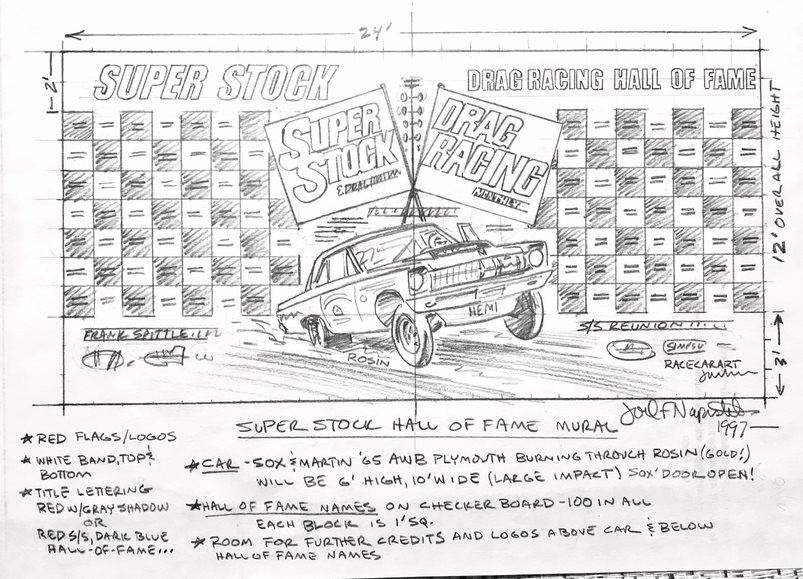 24'
2'
SUPER STOCK
DRAG RACING HALL OF FAME
SUPER
STOCK
DRAG
RACING
MONTHLY
12' OVERALL HEIGHT
HEMI
ROSIN
FRANK SPITTLE
S/S REUNION
RACECARART
3'
SUPER STOCK HALL OF FAME MURAL
1997
★ RED FLAGS/LOGOS
★ WHITE BAND, TOP &
BOTTOM
★ TITLE LETTERING
RED W/GRAY SHADOW
OR
RED S/S, DARK BLUE
HALL-OF-FAME...
★ CAR - SOX & MARTIN '65 AWB PLYMOUTH BURNING THROUGH ROSIN (GOLD!)
WILL BE 6' HIGH, 10' WIDE (LARGE IMPACT) SOX' DOOR OPEN!
★ HALL OF FAME NAMES ON CHECKER BOARD - 100 IN ALL
EACH BLOCK IS 1' SQ.
★ ROOM FOR FURTHER CREDITS AND LOGOS ABOVE CAR & BELOW
HALL OF FAME NAMES